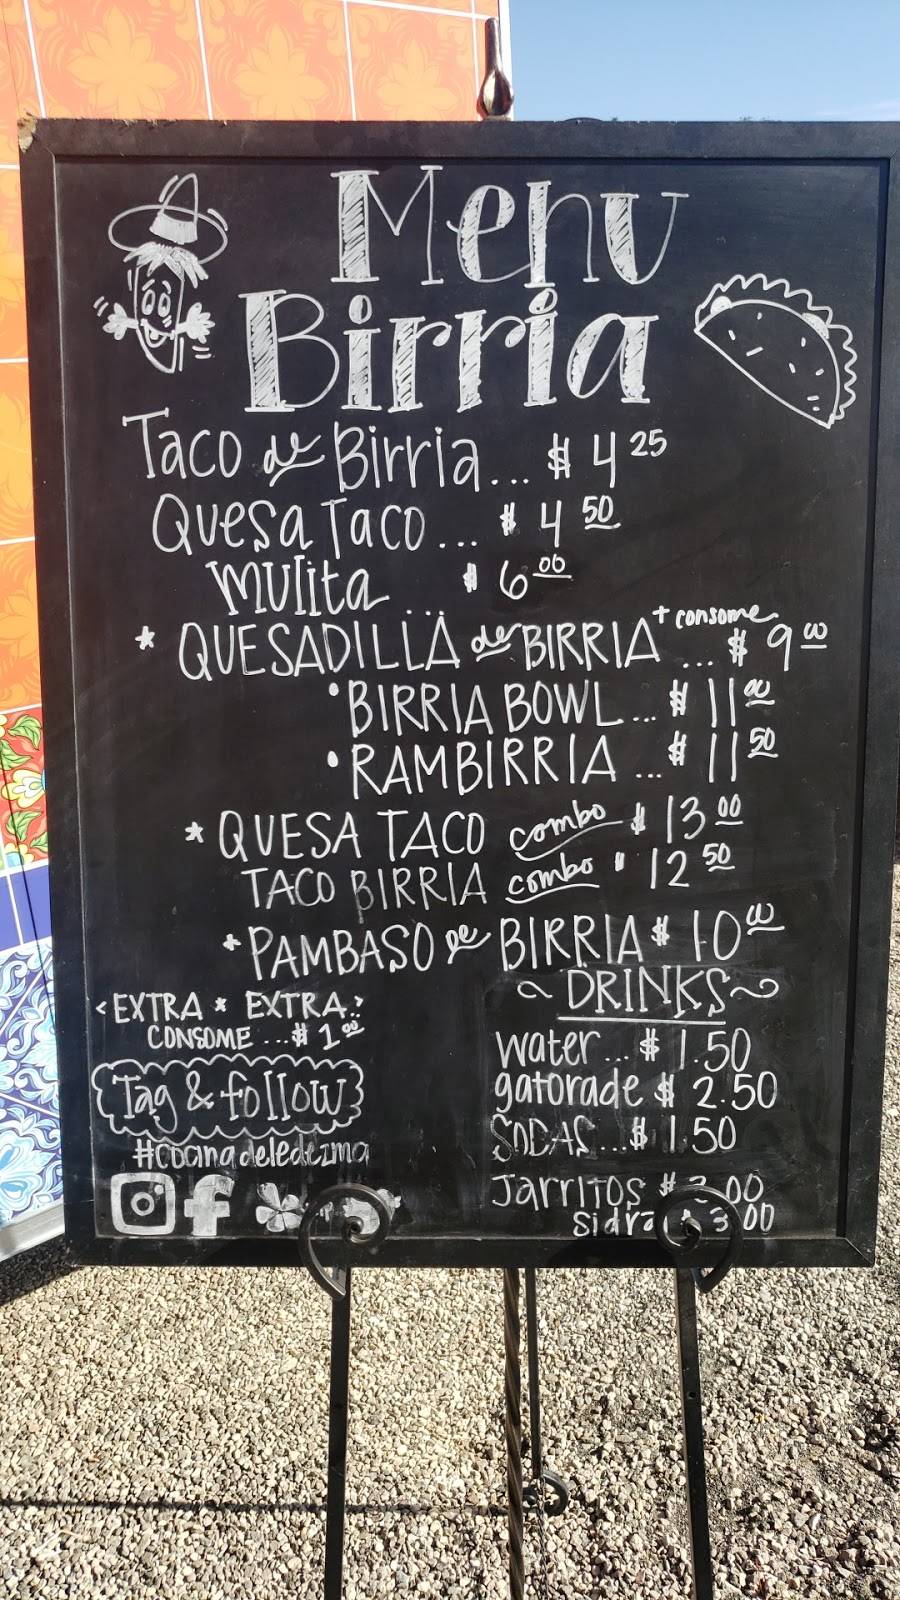 Menu
Birria
Taco de Birria... $ 4 25
Quesa Taco... $ 4 50
Mulita ... $ 6 00
* QUESADILLA de BIRRIA + consome ... $ 9 00
• BIRRIA BOWL... $ 11 00
• RAMBIRRIA ... $ 11 50
* QUESA TACO combo $ 13 00
TACO BIRRIA combo $ 12 50
* PAMBASO de BIRRIA $ 10 00
<EXTRA * EXTRA>
CONSOME ...$ 1 00
~ DRINKS ~
water... $ 1.50
gatorade $ 2.50
SODAS...$ 1.50
Jarritos $ 3.00
sidra $ 3.00
Tag & follow
#coanadeledezma
f